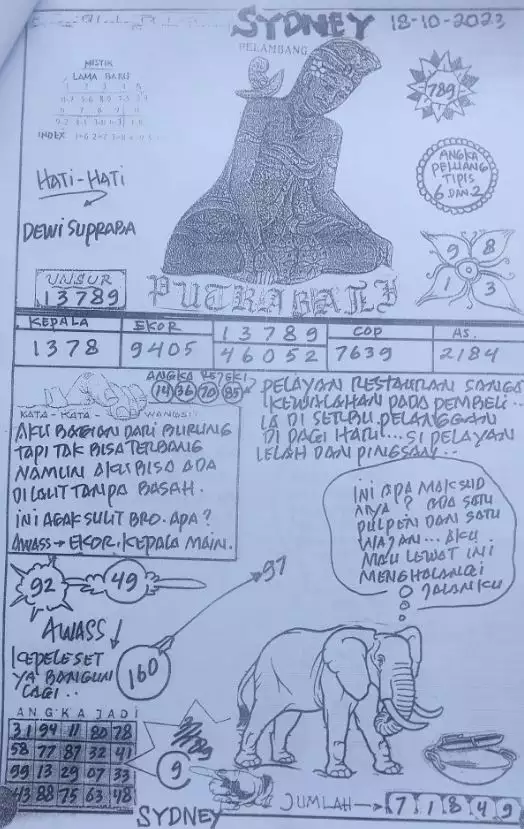 SYDNEY 18-10-2023
PELAMBANG
MISTIK
LAMA BARU
INDEX
HATI-HATI
DEWI SUPRABA
789
ANGKA
PELUANG
TIPIS
6 DAN 2
9 8
1 3
UNSUR
13789
PUTRI BALI
KEPALA EKOR 13789 COP AS.
1378 9405 46052 7639 2184
ANGKA REJEKI
14 36 70 85
KATA-KATA WANGSIT
AKU BAGIAN DARI BURUNG
TAPI TAK BISA TERBANG
NAMUN AKU BISA ADA
DI LAUT TAMPA BASAH.
INI AGAK SULIT BRO. APA?
AWASS → EKOR. KEPALA MAIN.
PELAYAN RESTAURAN SANGA
KEWALAHAN PADA PEMBELI..
LA DI SERBU PELANGGAN
DI PAGI HARI... SI PELAYAN
LELAH DAN PINGSAN..
INI APA MAKSUD
NYA? ADA SATU
PULPEN DAN SATU
WAJAN... AKU
MAU LEWAT INI
MENGHALANGI
JALANKU
92 49
97
AWASS
KEPELESET
YA BANGUN
LAGI..
160
ANGKA JADI
31 94 11 80 78
58 77 87 32 41
99 13 29 07 33
43 88 75 63 48
789
9
SYDNEY
JUMLAH → 7 1 8 4 9